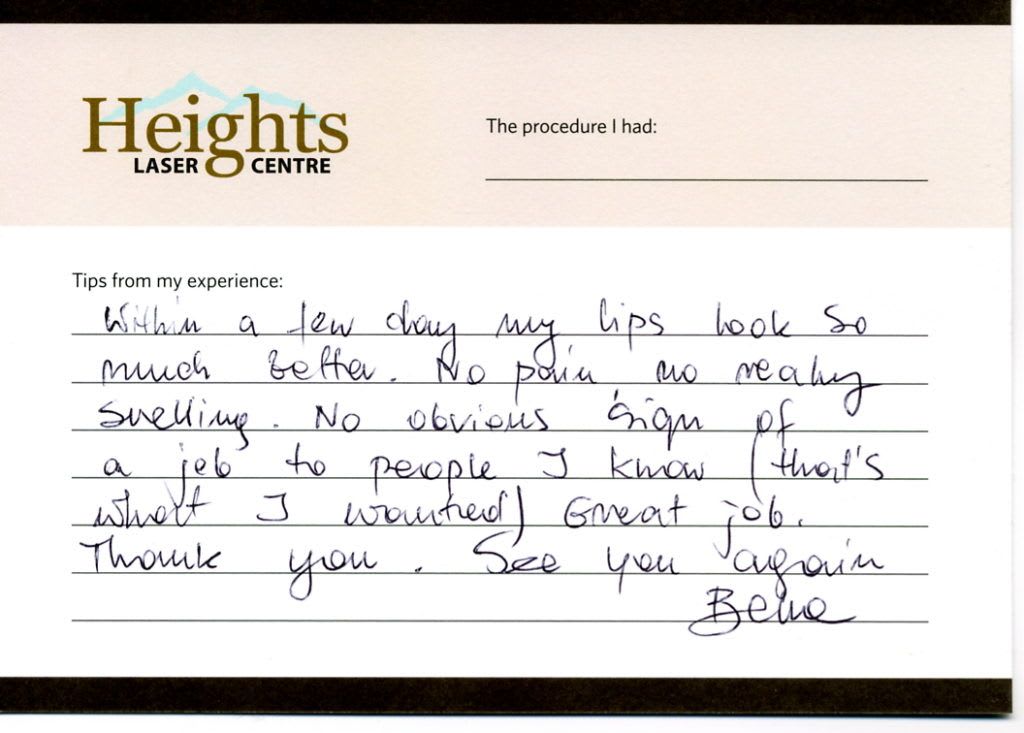 Heights
LASER CENTRE
The procedure I had:
Tips from my experience:
Within a few day my lips look so
much better. No pain, no really
swelling. No obvious sign of
a job to people I know (that's
what I wanted) Great job.
Thank you. See you again